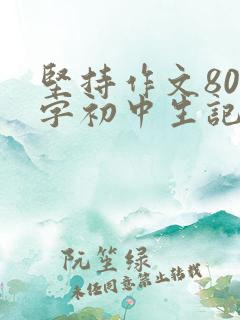 坚持作文80
字初中生记
阮笙绿
未经同意禁止转载